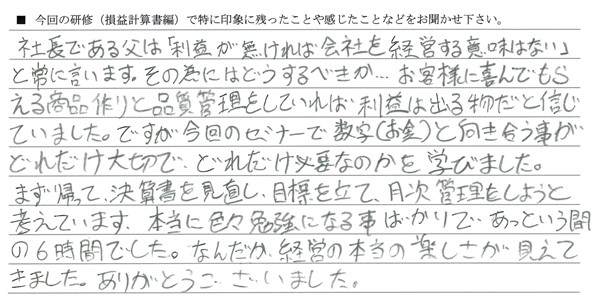 ■ 今回の研修（損益計算書編）で特に印象に残ったことや感じたことなどをお聞かせ下さい。
社長である父は「利益が無ければ会社を経営する意味はない」
と常に言います。その為にはどうするべきか… お客様に喜んでもら
える商品作りと品質管理をしていれば利益は出る物だと信じ
ていました。ですが今回のセミナーで数字(お金)と向き合う事が
どれだけ大切で、どれだけ必要なのかを学びました。
まず帰って、決算書を見直し、目標を立て、月次管理をしようと
考えています。本当に色々勉強になる事ばかりで、あっという間
の6時間でした。なんだか、経営の本当の楽しさが見えて
きました。ありがとうございました。